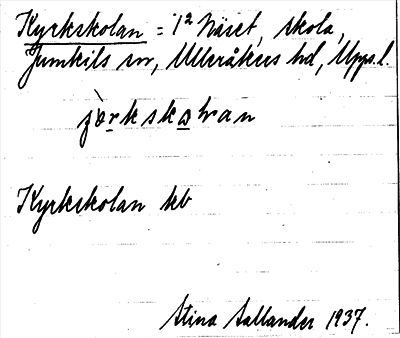 Kyrkskolan = 1² Näset, skola,
Jumkils sn, Ulleråkers hd, Upps.l.
Kyrkskolan kb
Stina Sallander 1937.